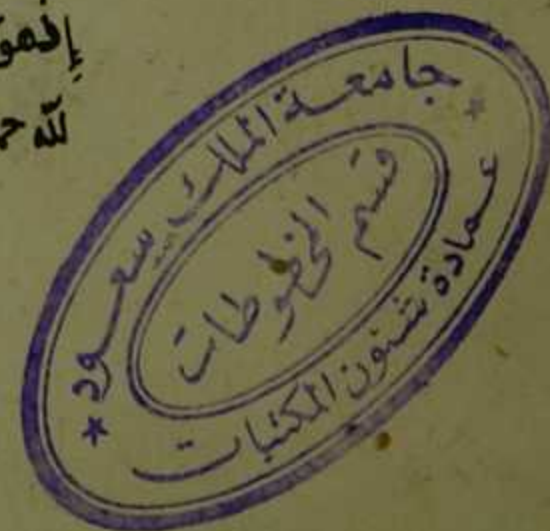 لله
جامعة الملك سعود
قسم المخطوطات
عمادة شئون المكتبات